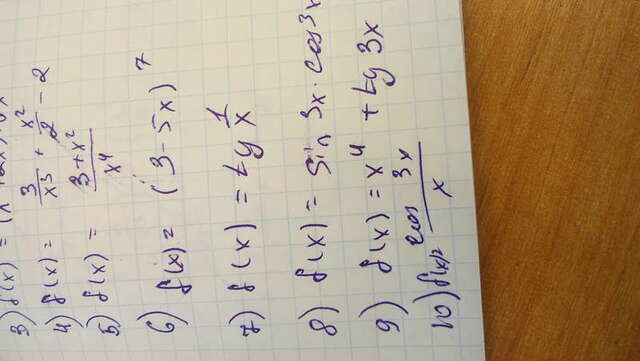 4) f(x) = 3/x³ + x²/2 - 2
5) f(x) = (3+x²)/x⁴
6) f(x) = (3-5x)⁷
7) f(x) = tg 1/x
8) f(x) = sin 3x · cos 3x
9) f(x) = x⁴ + tg 3x
10) f(x)= cos 3x / x